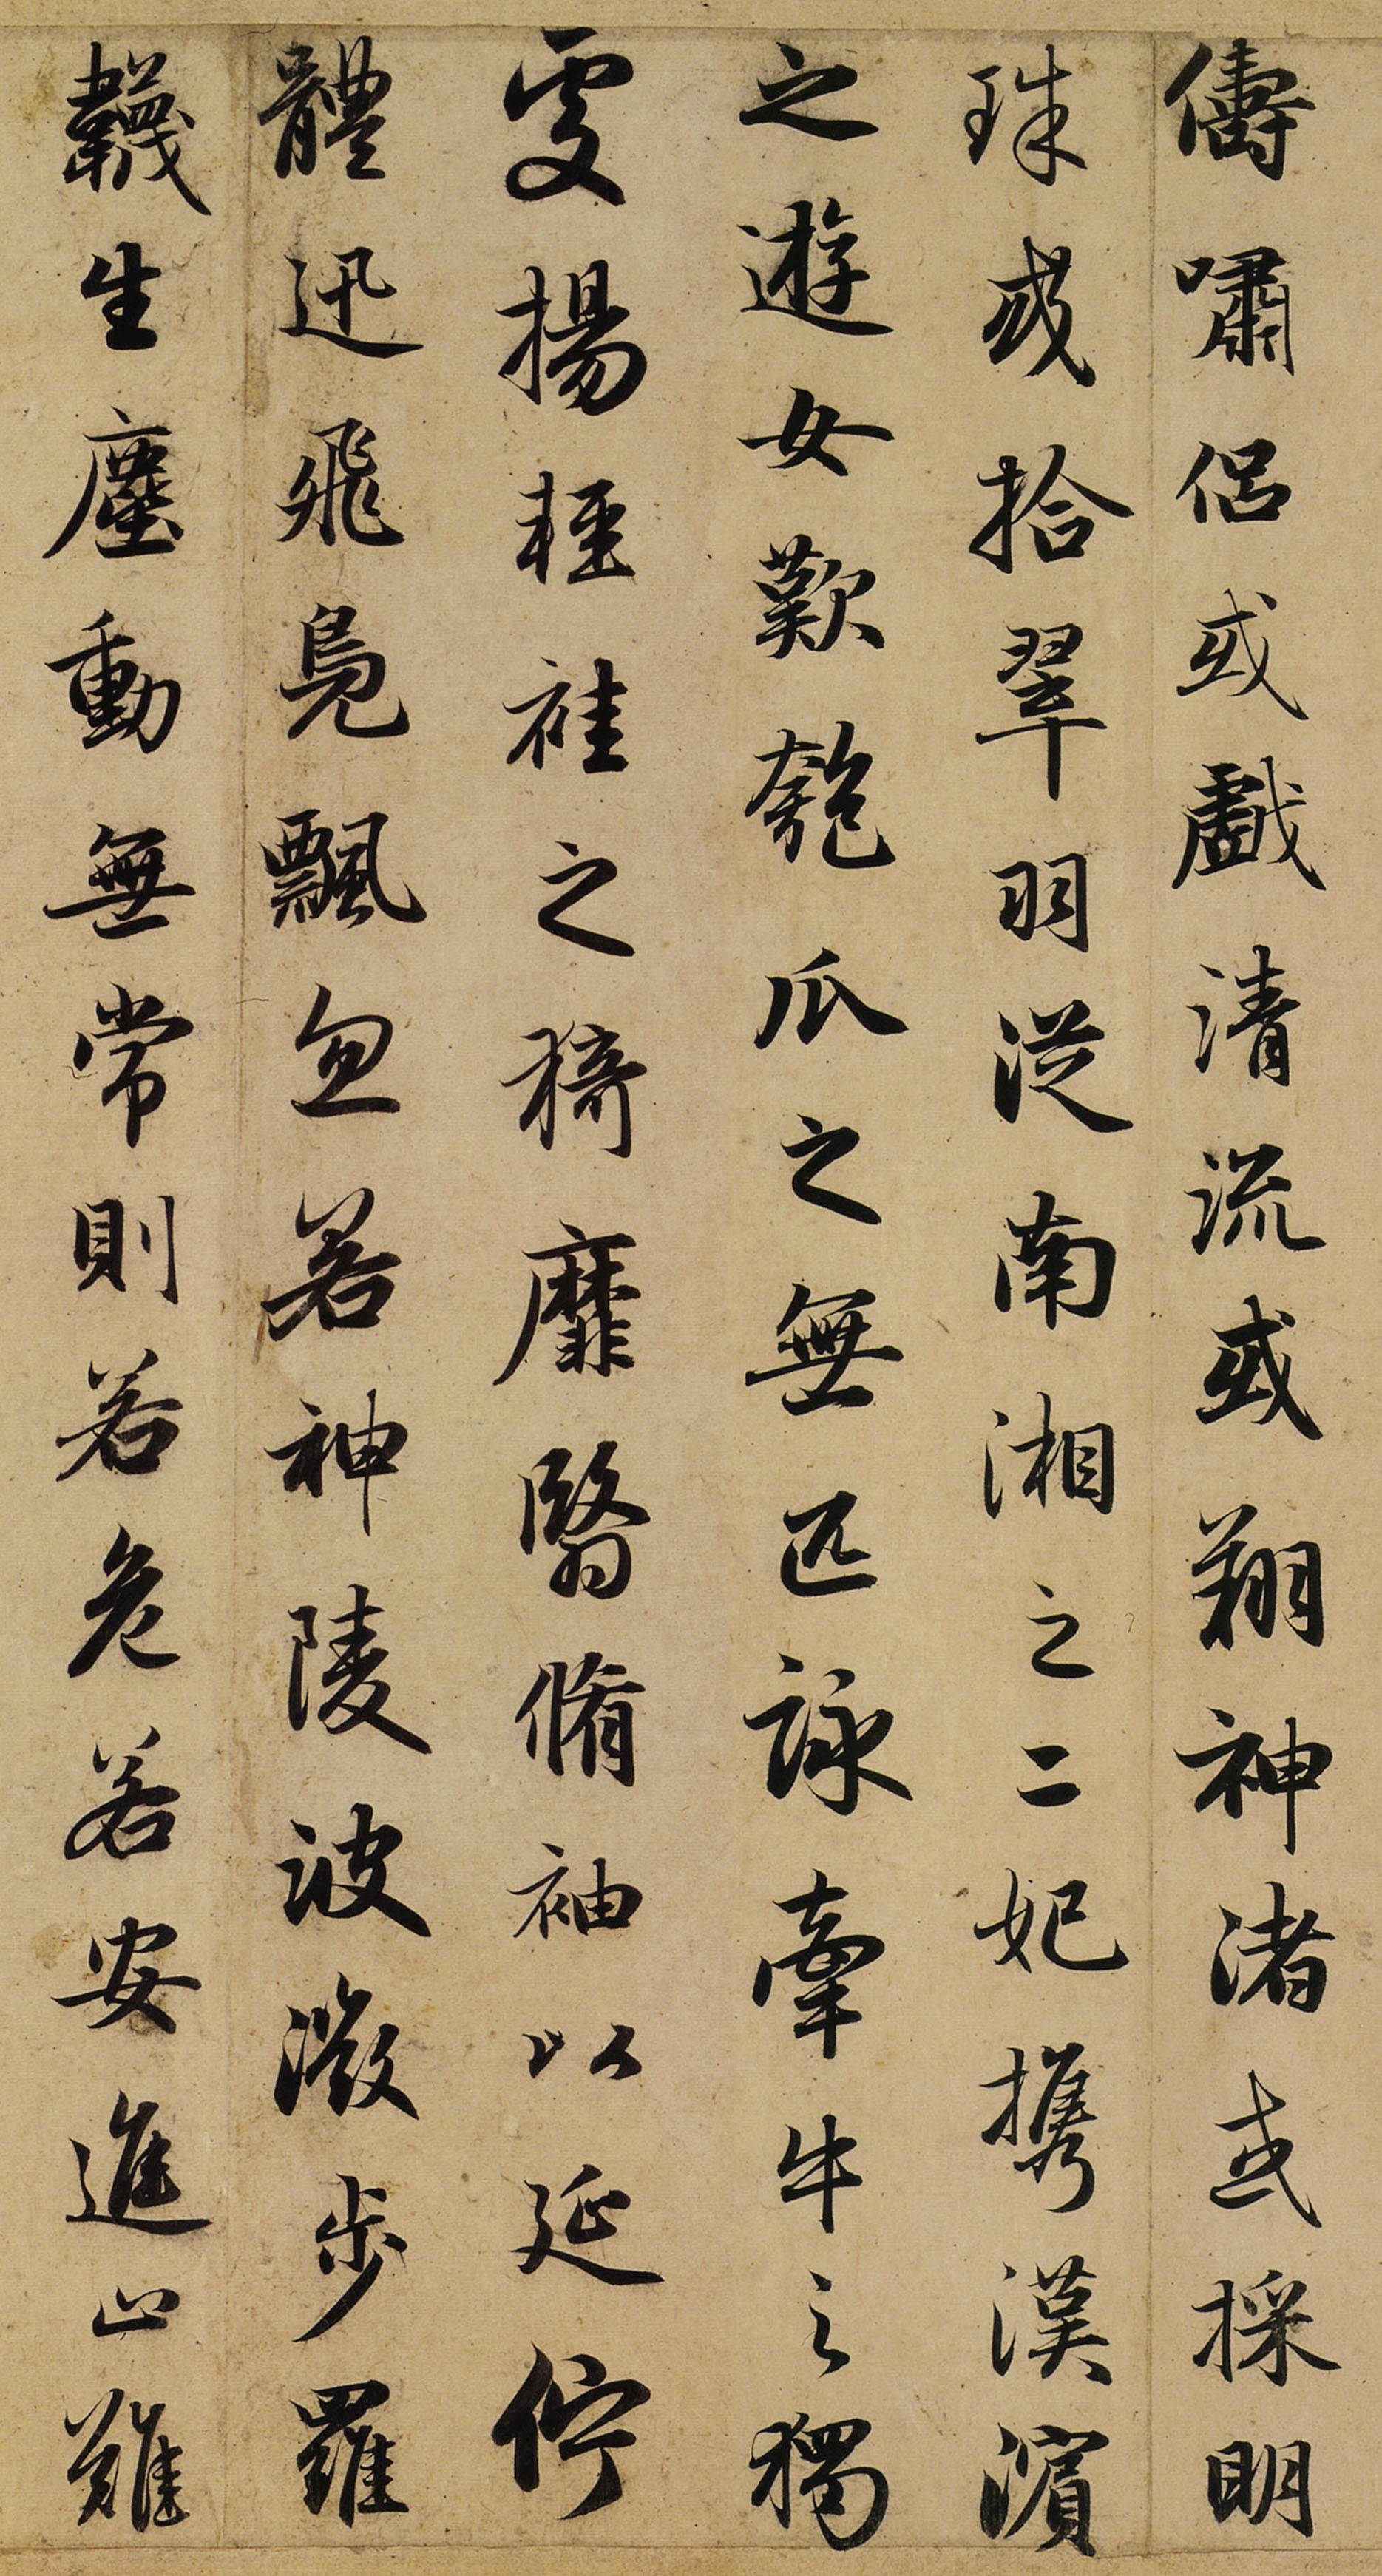 儔嘯侶或戲清流或翔神渚或採明
珠或拾翠羽從南湘之二妃攜漢濱
之遊女歎匏瓜之無匹詠牽牛之獨
處揚輕袿之猗靡翳脩袖以延佇
體迅飛鳧飄忽若神陵波微步羅
韈生塵動無常則若危若安進止難